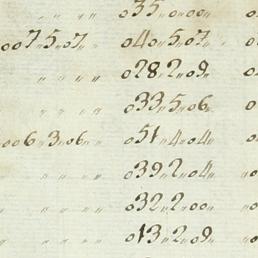 „ „ „ 035„0„00„ 0
007„5„07 „ 040„5„07„ 0
„ „ „ 028„2„09„ 0
„ „ „ 033„5„06„ 0
006„3„06„ 051„4„04„ 0
„ „ „ 039„2„04„ „0
„ „ „ 032„2„00„ „0
„ „ „ 013„2„09 „0